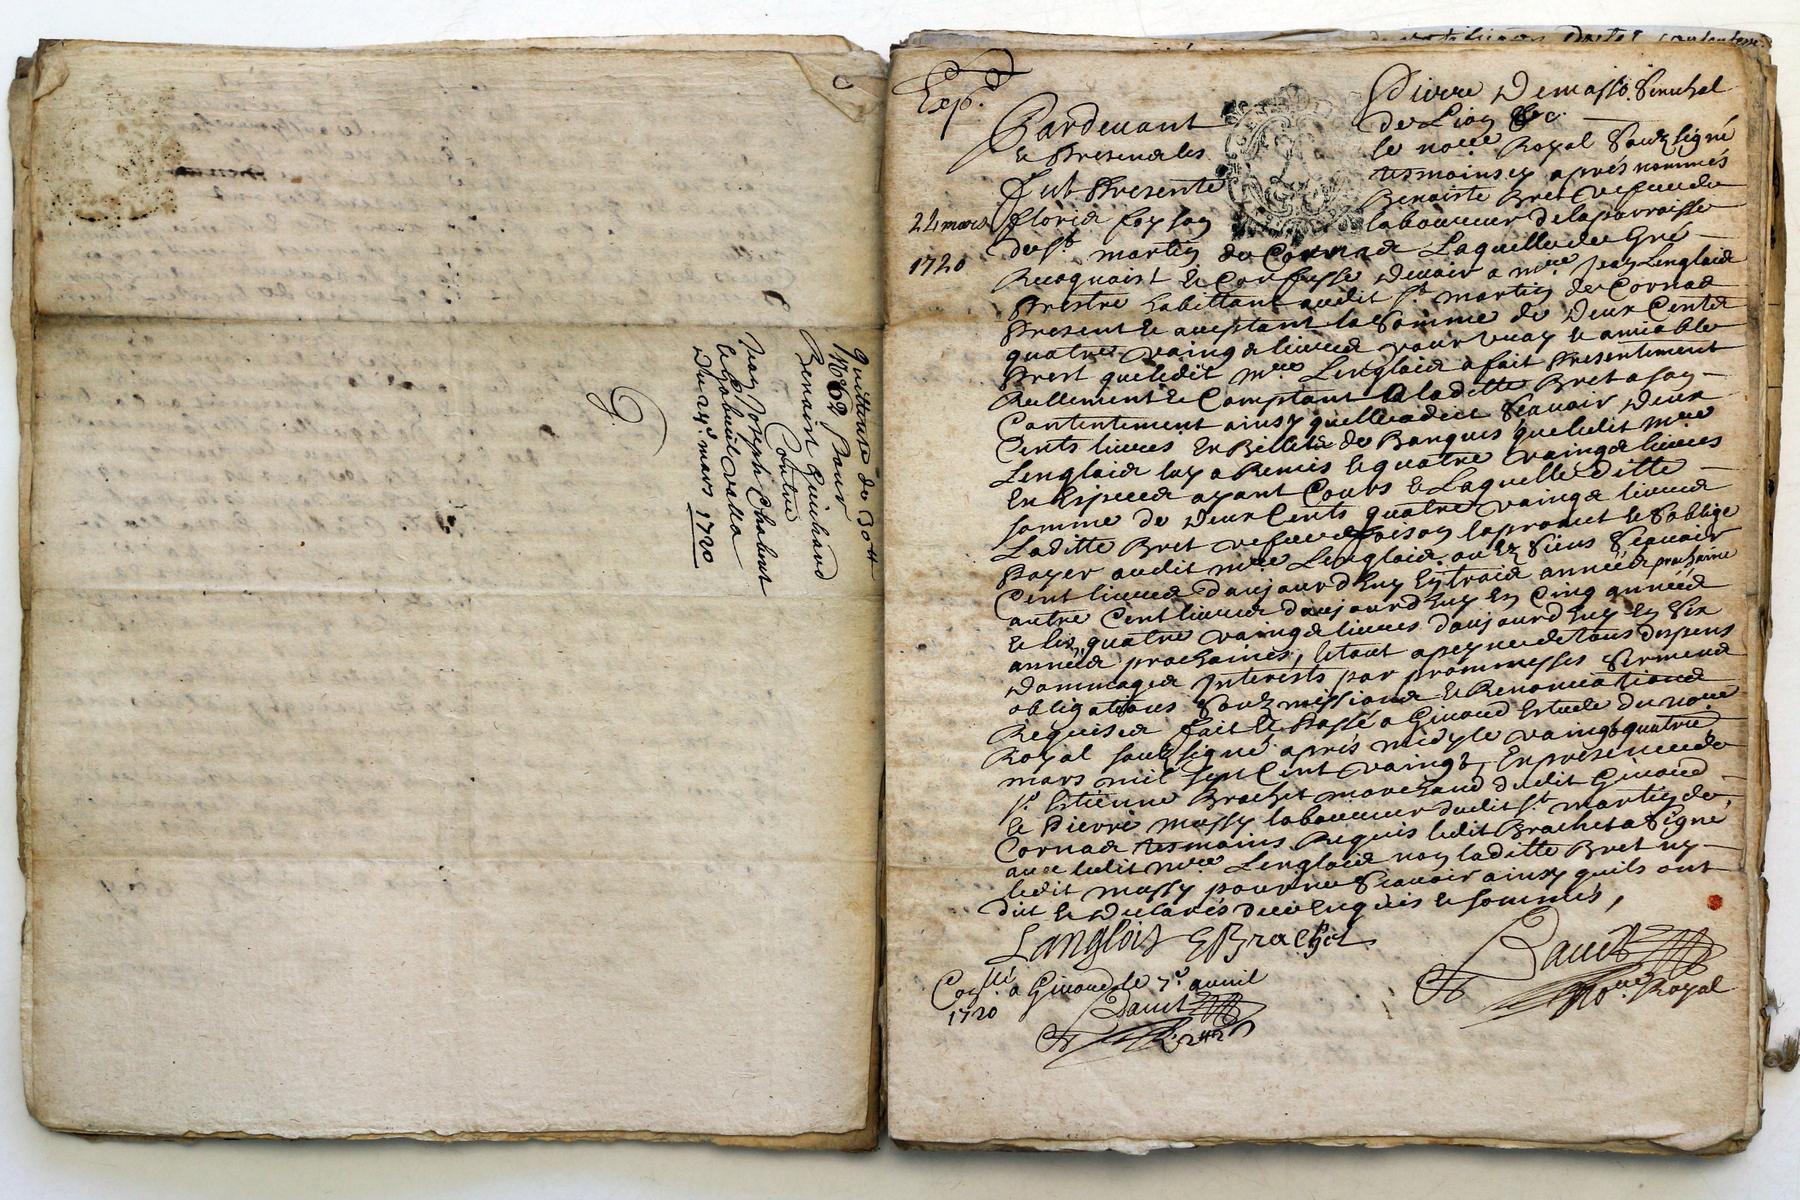 Quittance de 30tt
Pour
Benoist Guichard
Contre
Jean Joseph Chabert
et Gabriel valla
Du 24e mars 1720
Exp.d
24 mars
1720
Pierre Demasso Senechal
de Lion &c.
Pardevant le no.re Royal Soubzsigné
et Presence des tesmoins cy aprés nommés
fut Presente Benoiste Bret vefve de
laboureur de la parroisse
de St. martin de Cornas Laquelle de Gré
Recognoist et Confesse devoir a m.re Jean Lenglois
Prestre habittant audit St. martin de Cornas
Present et aceptant la Somme de Deux Cents
quatre vaings livres pour vray et amiable
Prest que ledit M.re Lenglois a fait Presentement
Reellement et Comptant A laditte Bret a son
Contentement ainsy quelle a dit Scavoir Deux
Cents livres En Billets de Banque que ledit M.re
Lenglois luy a Remis et quatre vaings livres
En Especes ayant Cours et Laquelle ditte
somme de Deux Cents quatre vaings livres
Laditte Bret vefve foison la promet et Soblige
Payer audit m.re Lenglois ou Ez Siens Scavoir
Cent livres daujourdhuy En trois années prochaine
autre Cent livres daujourdhuy En Cinq années
et les quatre vaings livres daujourdhuy En Six
années prochaines, le tout a peyne de tous despens
Dommages Interests par prommesses Serments
obligations Soubzmissions et Renonciations
Requises fait et Passé a Givord Estude du no.re
Royal soubzsigné aprés midy le vaingt quatrie
mars mil sept Cent vaingt, En presence de
Sr. Estienne Brachet marchand dudit Givord
et Pierre mussy laboureur dudit St. martin de
Cornas tesmoins Requis ledit Brachet a Signé
avec ledit m.re Lenglois non laditte Bret ny
ledit mussy pour ne Scavoir ainsy quils ont
dit et Declarés de ce Enquis et sommés,
Langlois E Brachet
no.re Royal
Con.llé a Givord le 7.e avril
1720